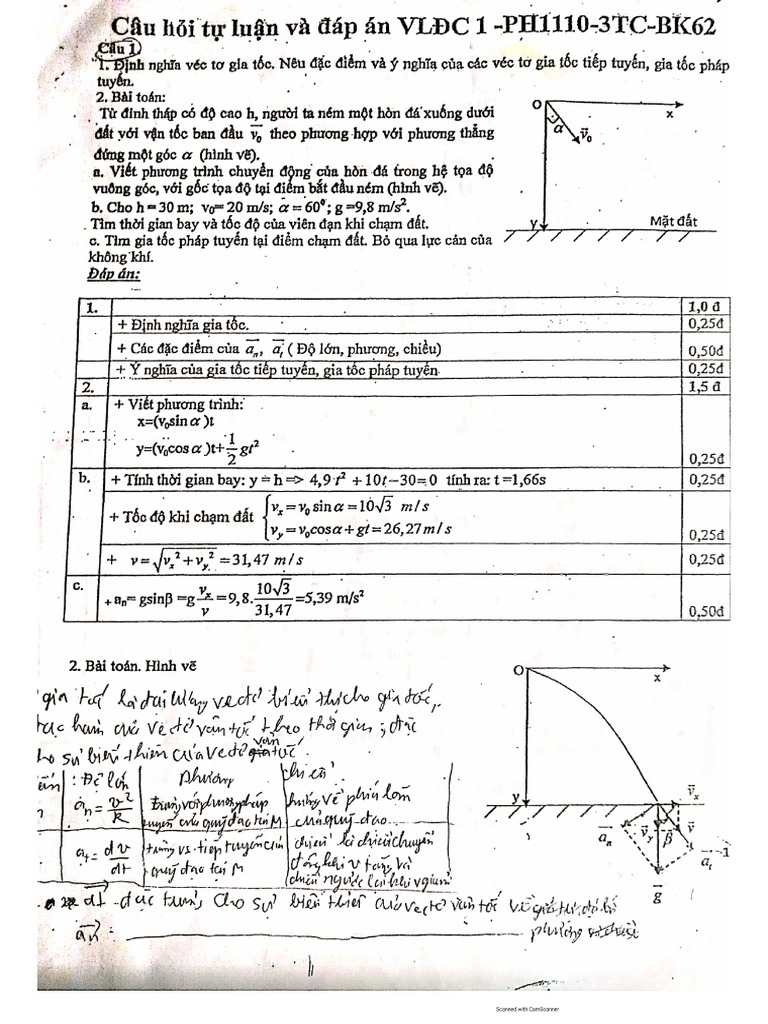 Câu hỏi tự luận và đáp án VLĐC 1 -PH1110-3TC-BK62
Câu 1
1. Định nghĩa véc tơ gia tốc. Nêu đặc điểm và ý nghĩa của các véc tơ gia tốc tiếp tuyến, gia tốc pháp
tuyến.
2. Bài toán:
Từ đỉnh tháp có độ cao h, người ta ném một hòn đá xuống dưới
đất với vận tốc ban đầu v₀ theo phương hợp với phương thẳng
đứng một góc α (hình vẽ).
a. Viết phương trình chuyển động của hòn đá trong hệ tọa độ
vuông góc, với gốc tọa độ tại điểm bắt đầu ném (hình vẽ).
b. Cho h = 30 m; v₀= 20 m/s; α = 60⁰; g =9,8 m/s².
Tìm thời gian bay và tốc độ của viên đạn khi chạm đất.
c. Tìm gia tốc pháp tuyến tại điểm chạm đất. Bỏ qua lực cản của
không khí.
O x
α v₀
y Mặt đất
Đáp án:
1. 1,0 đ
+ Định nghĩa gia tốc. 0,25đ
+ Các đặc điểm của aₙ, aₜ ( Độ lớn, phương, chiều) 0,50đ
+ Ý nghĩa của gia tốc tiếp tuyến, gia tốc pháp tuyến 0,25đ
2. 1,5 đ
a. + Viết phương trình:
x=(v₀sinα)t
y=(v₀cosα)t+1/2 gt² 0,25đ
b. + Tính thời gian bay: y = h => 4,9t² +10t−30=0 tính ra: t =1,66s 0,25đ
+ Tốc độ khi chạm đất { vₓ = v₀ sinα = 10√3 m/s
v_y = v₀cosα + gt = 26,27 m/s 0,25đ
+ v = √(vₓ² + v_y²) = 31,47 m/s 0,25đ
c. + aₙ= gsinβ =g vₓ/v =9,8. 10√3/31,47 =5,39 m/s² 0,50đ
2. Bài toán. Hình vẽ
O x
y vₓ
aₙ v_y β v aₜ
g
gia tốc là đại lượng vectơ biểu thị cho gia tốc,
hàm của vectơ vận tốc theo thời gian; đặc
cho sự biến thiên của vectơ vận tốc.
Độ lớn phương chiều
aₙ = v²/R trùng với phương pháp hướng về phía lõm
tuyến của quỹ đạo tại M của quỹ đạo
aₜ = dv/dt trùng vs tiếp tuyến của chiều là chiều chuyển
quỹ đạo tại M động khi v tăng và
chiều ngược lại khi v giảm
aₜ đặc trưng cho sự biến thiên của vectơ vận tốc về giá trị
aₙ : phương
Scanned with CamScanner